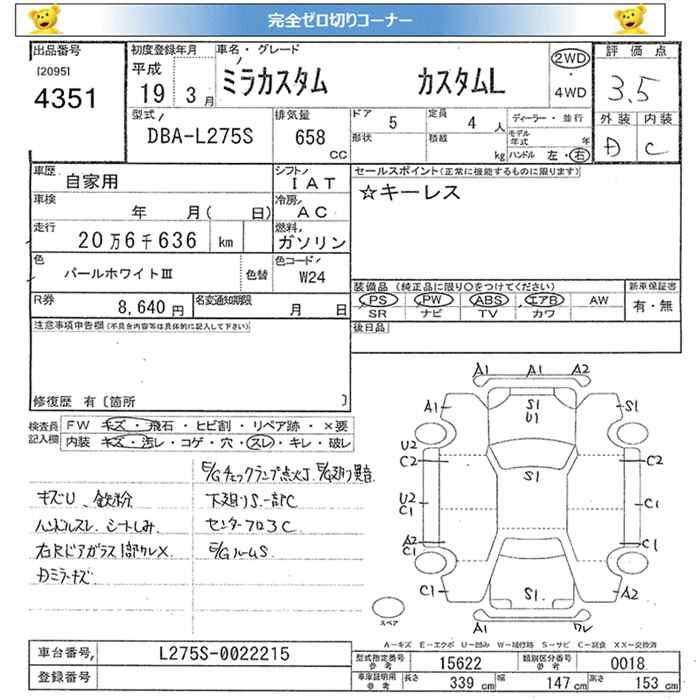 完全ゼロ切りコーナー
出品番号
[2095]
4351
初度登録年月
平成
19 3月
車名・グレード
ミラカスタム カスタムL
2WD
・
4WD
評価点
3.5
外装 内装
D C
型式
DBA-L275S
排気量
658
CC
ドア
5
定員
4 人
形状
積載
kg
ディーラー・並行
モデル年式 年
ハンドル 左・右
車歴
自家用
シフト
IAT
車検
年 月( 日)
冷房
AC
走行
20万6千636 km
燃料
ガソリン
色
パールホワイトⅢ
色替
色コード
W24
R券
8,640円
名変通知期限
月 日
セールスポイント(正常に機能するものに限ります)
☆キーレス
装備品 (純正品に限り○をつけてください)
PS PW ABS エアB AW
SR ナビ TV カワ
新車保証書
有・無
後日品
注意事項申告欄(不具合内容等は具体的に記入して下さい)
修復歴 有〔箇所 〕
検査員
記入欄
FW キズ・飛石・ヒビ割・リペア跡・×要
内装 キズ・汚レ・コゲ・穴・スレ・キレ・破レ
E/Gチェックランプ点火J. E/G廻り異音
キズU. 鉄粉
下廻りS.一部C
ハンドルスレ. シートしみ.
センターフロ3C
右Rドアガラス1部クレX.
E/GルームS
Dミラーキズ
A1 A1 A2
A1 S1 S1
U1
U2
C2 C2
S1
U2
C1 C1
A2
C1 C1
C1 S1 A2
A1 ワレ
スペア
A-キズ E-エクボ U-凹み W-補修跡 S-サビ C-腐食 XX-交換済
車台番号
L275S-0022215
登録番号
型式指定番号
参考
15622
類別区分番号
参考
0018
車庫証明用
参考
長さ 339 cm 幅 147 cm 高さ 153 cm